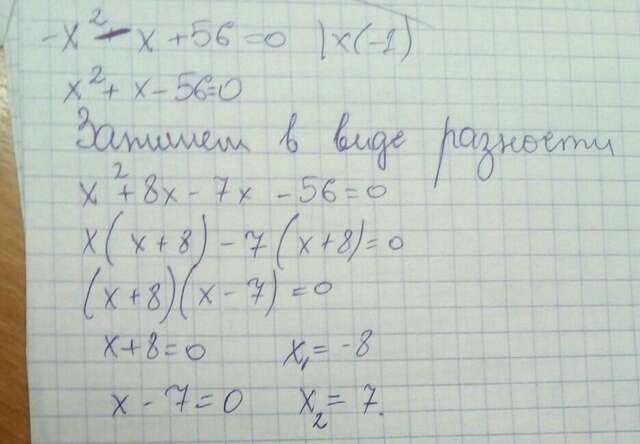 -x² - x + 56 = 0 | x(-1)
x² + x - 56 = 0
Запишем в виде разности
x² + 8x - 7x - 56 = 0
x(x + 8) - 7(x + 8) = 0
(x + 8)(x - 7) = 0
x + 8 = 0 x₁ = -8
x - 7 = 0 x₂ = 7.